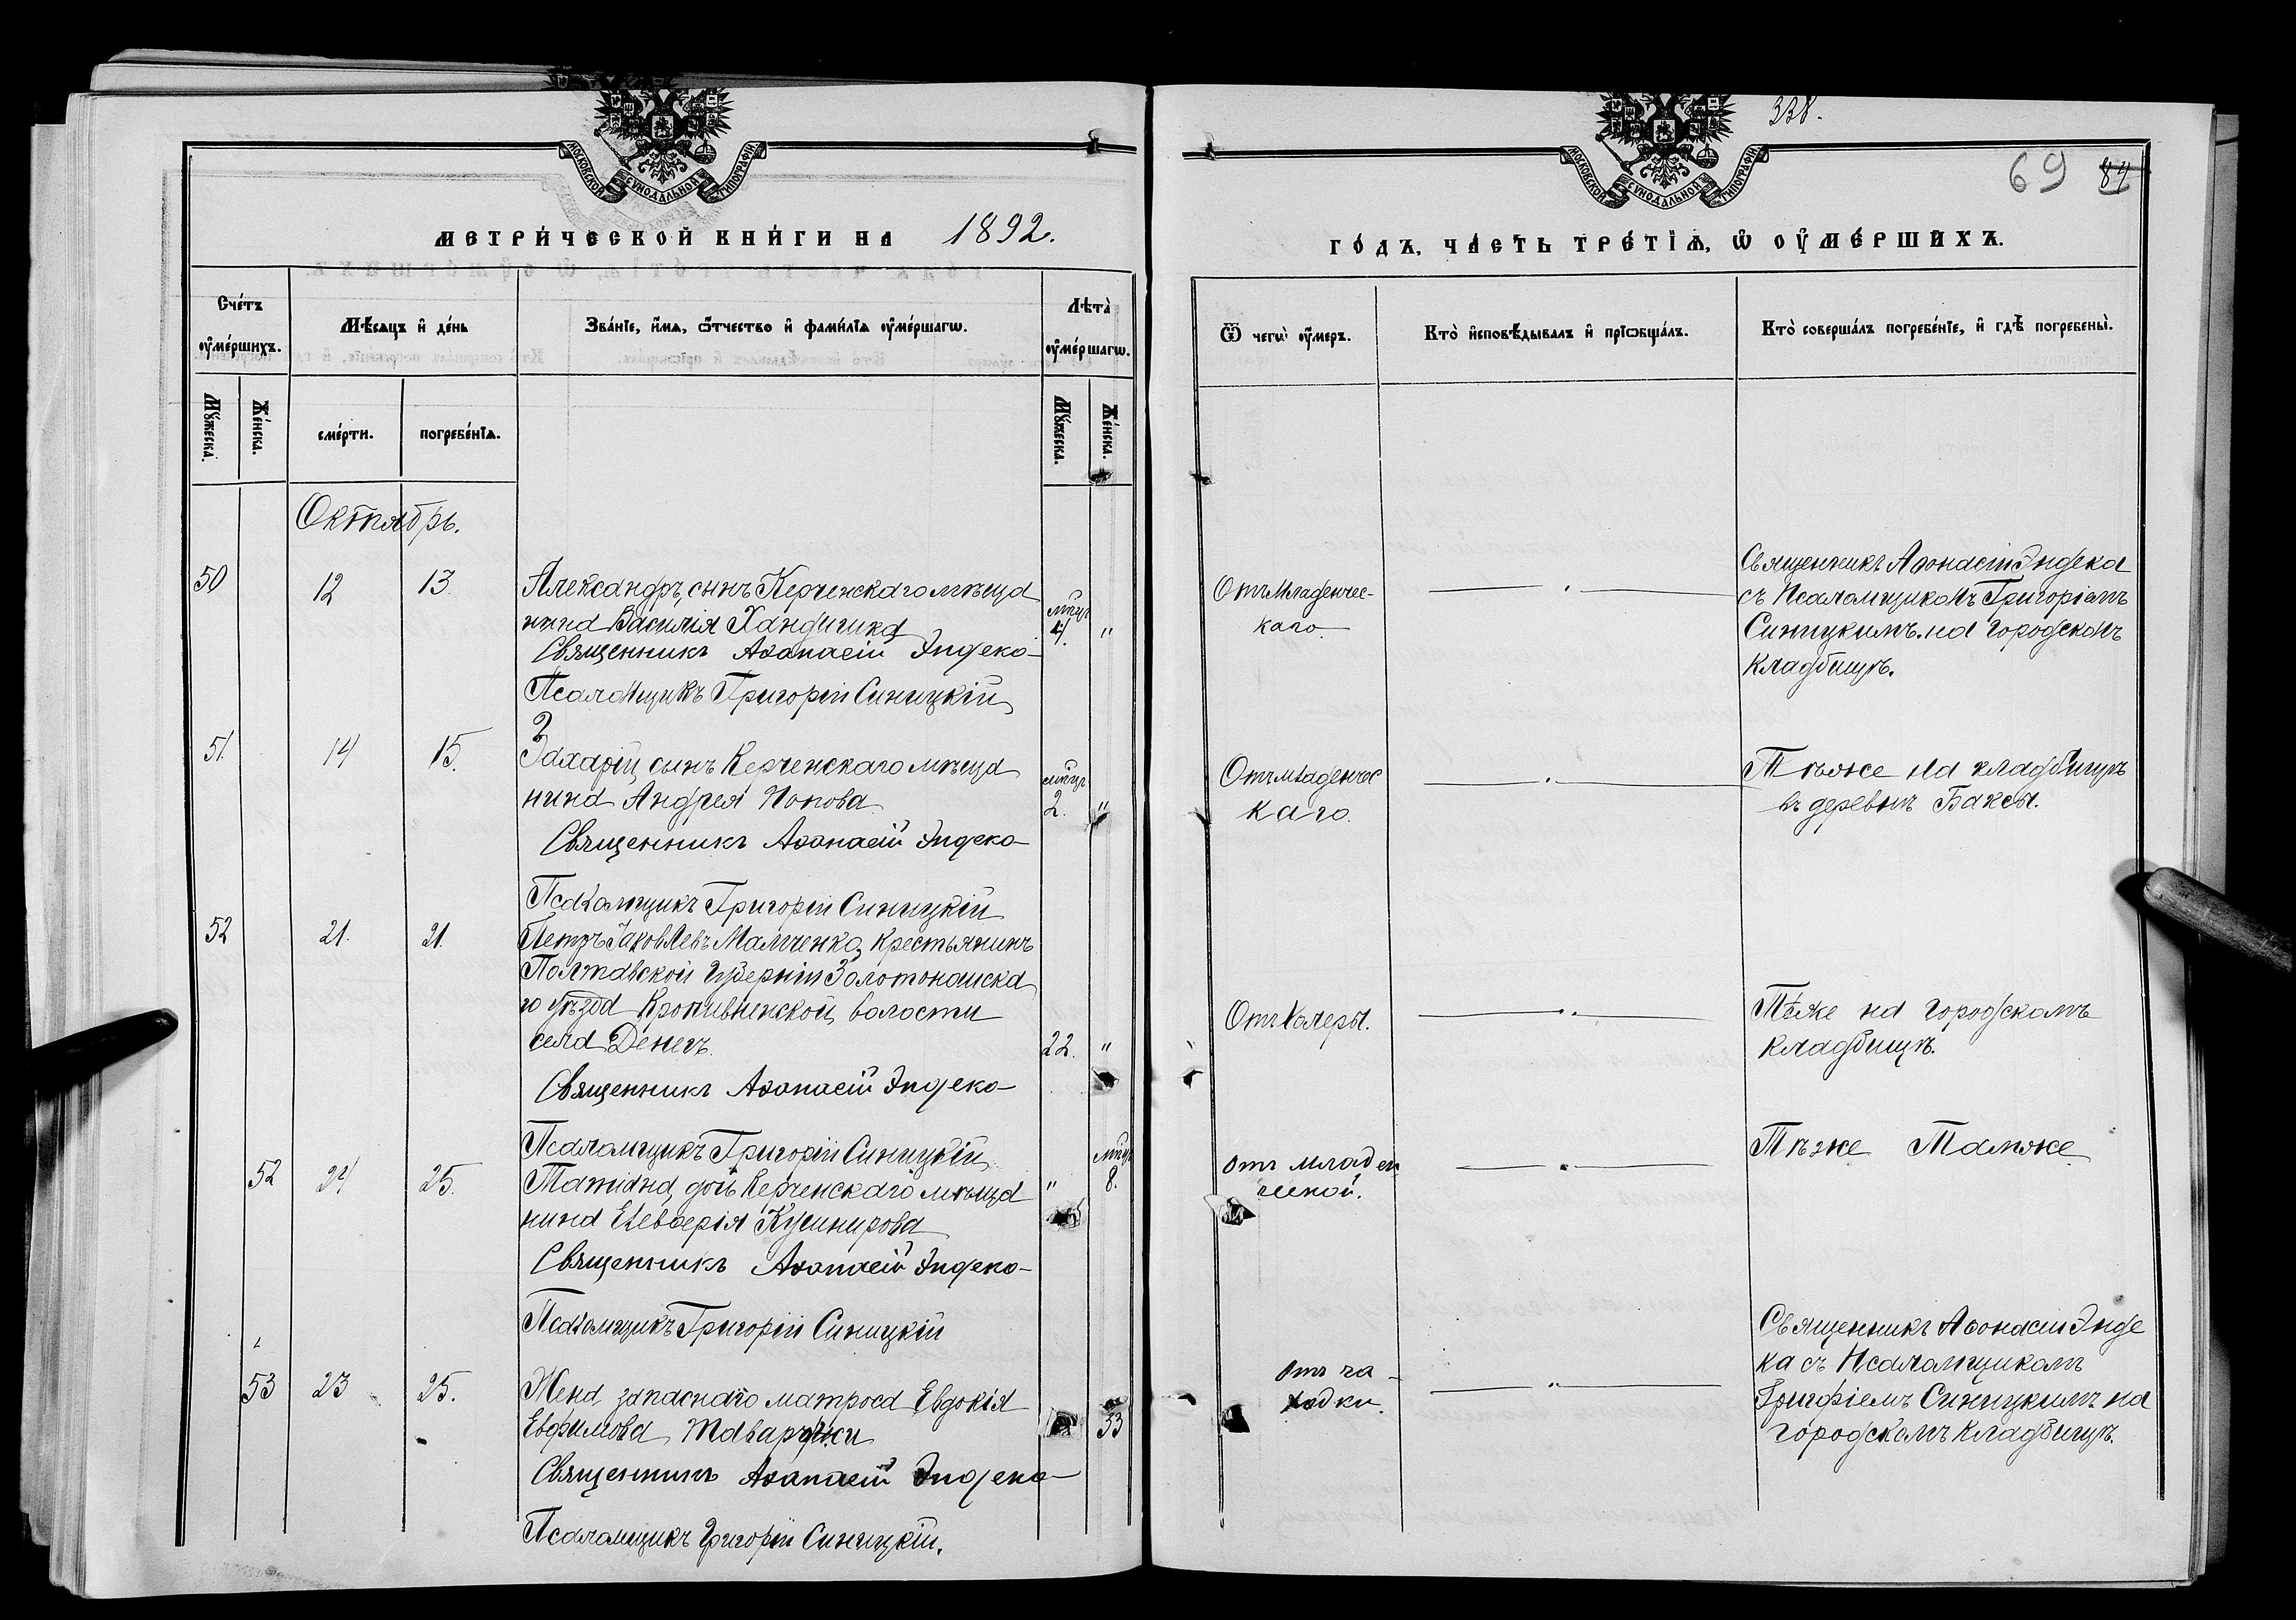 МОСКОВСКОЙ СѴНОДАЛЬНОЙ ТИПОГРАФІИ
МЕТРИ́ЧЕСКОЙ КНИ́ГИ НА 1892.
Сче́тъ ᲂу҆ме́ршихъ.
Мѣ́сяцъ и҆ де́нь
Зва́нїе, и҆́мѧ, ѻ҆́тчество и҆ фами́лїѧ ᲂу҆ме́ршагѡ.
Лѣта̀ ᲂу҆ме́ршагѡ.
Мꙋ́жеска.
Же́нска.
сме́рти.
погребе́нїѧ.
Мꙋ́жеска.
Же́нска.
Октябрь.
50 12 13.
Александръ, сынъ Керченскаго мѣща
нина Василія Хандигика
4. "
Священникъ Аѳанасій Эндека
Псаломщикъ Григорій Синицкій
51. 14 15.
Захарій, сынъ Керченскаго мѣща
нина Андрея Попова
2. "
Священникъ Аѳанасій Эндека
Псаломщикъ Григорій Синицкій
52 21. 21.
Петръ Іаковлевъ Мамченко, крестьянинъ
Полтавской Губерніи Золотоношска
го уѣзда Кропивненской волости
села Денегъ.
22. "
Священникъ Аѳанасій Эндека
Псаломщикъ Григорій Синицкій
52 24 25.
Татіана, дочь Керченскаго мѣща
нина Елевѳерія Кушнирова
" 8.
Священникъ Аѳанасій Эндека
Псаломщикъ Григорій Синицкій
53 23 25.
Жена запаснаго матроса Евдокія
Евфимова
33
Священникъ Аѳанасій Эндека
Псаломщикъ Григорій Синицкій.
338.
69 84
МОСКОВСКОЙ СѴНОДАЛЬНОЙ ТИПОГРАФІИ
ГО́ДЪ, ЧА́СТЬ ТРЕ́ТЇѦ, Ѡ҆ ОУ҆МЕ́РШИХЪ.
Ѿ чегѡ̀ ᲂу҆́меръ.
Кто̀ и҆сповѣ́дывалъ и҆ прїѡбща́лъ.
Кто̀ соверша́лъ погребе́нїе, и҆ гдѣ̀ погребены̀.
Отъ Младенчес-
каго.
Священникъ Аѳонасій Эндека
съ Псаломщикомъ Григоріемъ
Синицкимъ. на Городскомъ
кладбищѣ.
Отъ младенчес
каго.
Тѣже на кладбищѣ
въ деревнѣ Баксы.
Отъ Холеры.
Тѣже на Городскомъ
кладбищѣ.
отъ младен
ческой.
Тѣже Тамже
отъ ча-
хотки.
Священникъ Аѳонасій Энде
ка съ Псаломщикомъ
Григоріемъ Синицкимъ на
городскомъ кладбищѣ.